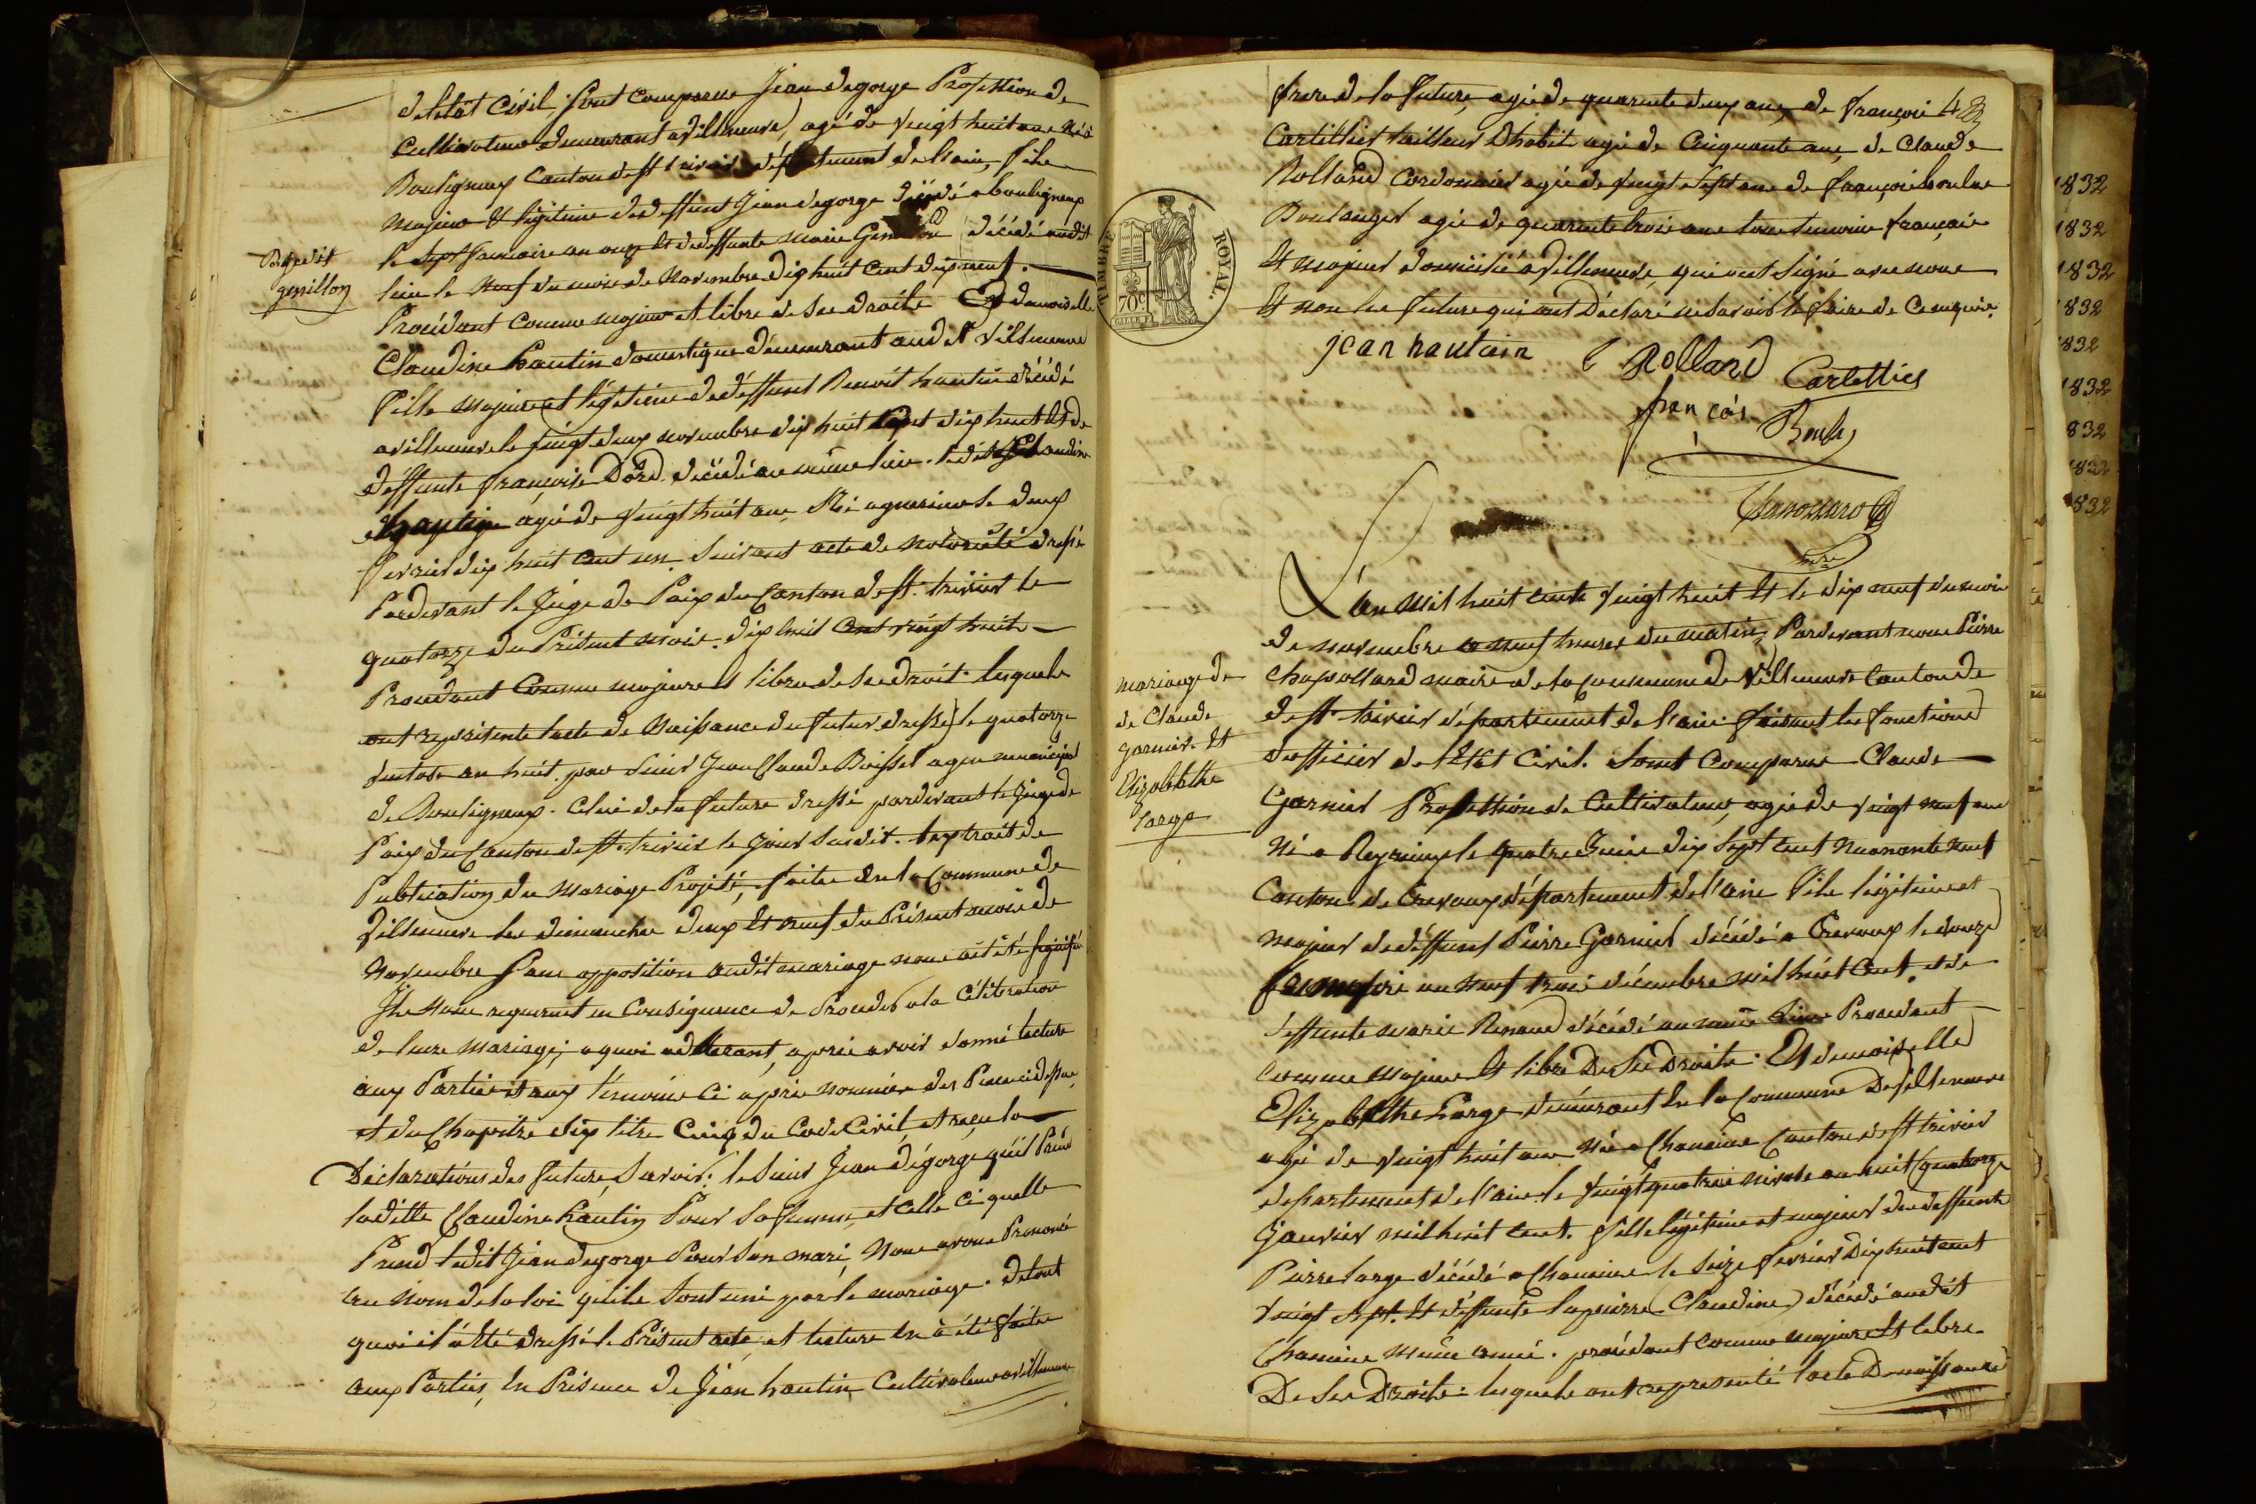 de létat Civil. Sont comparus Jean degorge Profession de
Cultivateur demeurant a Villeneuve, agé de vingt huit ans Né à
Bouligneux Canton de St trivier département de l'ain, fils
Majeur et légitime de deffunt Jean degorge décédé a bouligneux
le Sept an onze et de deffunte Marie décédé audit
lieu le Neuf du mois de Novembre dix huit cent dix neuf.
genillon
Procédant comme majeur et libre de ses droits Et demoiselle
Claudine hautin domestique demeurant audit Villeneuve
fille majeure et légitime de deffunt Benoit hautin décédé
a villeneuve le vingt deux novembre dix huit cent dix huit et de
deffunte françoise Dord décédé au même lieu. ladite Claudine
hautin agé de vingt huit ans, Né a le deux
fevrier dix huit cent un suivant acte de notoriété dressé
Pardevant le Juge de Paix du Canton de St. trivier le
quatorze du Présent mois. dix huit cent vingt huit
Procedant Comme majeure et libre de ses droits. lesquels
ont representé lacte de Naissance du futur dressé le quatorze
an huit. par Sieur Jean Claude Boisset agent municipal
de Bouligneux. Celui de la future dressé pardevant le Juge de
Paix du Canton de St trivier le Jour Susdit. lextrait de
Publication du Mariage Projeté, faites dans la Commune de
Villeneuve les dimanches deux et neuf du Présent mois de
Novembre Sans opposition audit mariage nous ait été signifié
Ils Nous requerent en Conséquence de Proceder a la Célébration
de leurs Mariage; a quoi adherant, après avoir donné lecture
aux Parties et aux témoins ci après nommés des Pieces ci dessus
et du Chapitre Six titre Cinq du Code Civil, et reçu la
Déclarations des futurs, Savoir: le Sieur Jean dégorge quil Prend
laditte Claudine hautin Pour Sa femme, et celle ci quelle
Prend ledit Jean degorge Pour Son mari, Nous avons Prononcé
au Nom de la loi quils Sont unis par le mariage. de tout
quoi il a été dressé le Présent acte, et lecture en a été faite
aux Parties, En Présence de Jean hautin Cultivateur a villeneuve
frere de la future, agé de quarente deux ans, de françois 48
Cartillier tailleur D'habit agé de Cinquante ans, de Claude
Rolland Cordonnier agé de vingt Sept ans de françois
Boulanger agé de quarente trois ans tous temoins français
Et majeurs domicilié a Villeneuve, qui ont Signé avec nous
Et non les future qui ont Déclaré ne Savoir le faire de Ce enquis.
TIMBRE ROYAL.
70c
jean hautain C Rolland Cartillier
françois

L'an Mil huit cent vingt huit et le dix neuf du mois
de novembre a neuf heures du matin, Pardevant nous Pierre
mariage de
de Claude
garnier. Et
Elizabethe
large
Chapolland maire de la Commune de Villeneuve Canton de
de St. trivier département de l'ain faisant les fonctions
d'officier de l'Etat Civil. Sont Comparus Claude
Garnier Profession de Cultivateur, agé de vingt neuf ans
Né a Reyrieux le quatre Juin dix Sept cent Nonante neuf
Canton de trevoux département de l'ain fils légitime et
majeur de deffunt Pierre Garnier décédé a trevoux le douze
frimaire an Neuf trois décembre mil huit cent. et de
deffunte marie Renaud décédé au même Lieu Procedant
Comme Majeur Et libre De Ses Droits. Et demoiselle
Elizabethe Large demeurant En la Commune De Villeneuve
agé de vingt huit ans Née a Chaneins Canton de St trivier
departement de l'ain le vingt quatre nivose an huit quatorze
Janvier mil huit cent. fille légitime et majeur de deffunts
Pierre large décédé a Chaneins le Seize fevrier Dix huit cent
vingt Sept. Et deffunte lapierre Claudine décédé audit
Chaneins même année. procédant comme majeure Et libre
De Ses Droits. lesquels ont representé lacte De naissance
1832
1832
1832
1832
1832
1832
832
1832
1832